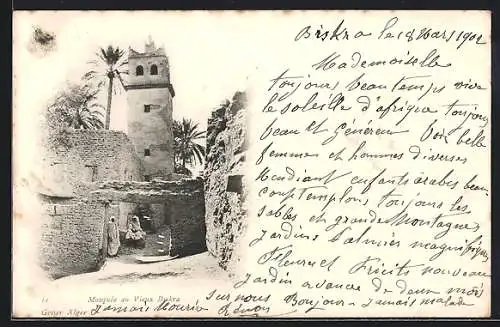 Biskra le 18 Mars 1902
Mademoiselle
toujours beau temps vive
le soleille d'afrique toujours
beau et Généreux Voir belle
femmes et hommes diverses
enfants arabes beau
toujours les
Sables et grande Montagne
Jardins Palmiers magnifique
Fleures et Fruits nouveau
Jardin avance de deux mois
sur nous Bonjour Jamais malade
11 Mosquée au Vieux Biskra
Geiser Alger Jamais Mourir